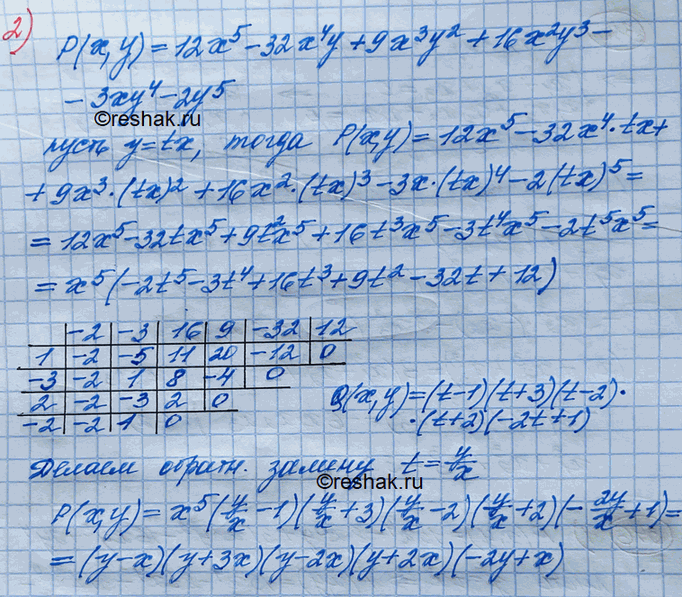 2)
P(x,y) = 12x⁵ - 32x⁴y + 9x³y² + 16x²y³ -
- 3xy⁴ - 2y⁵
©reshak.ru
пусть y=tx, тогда P(x,y) = 12x⁵ - 32x⁴·tx +
+ 9x³·(tx)² + 16x²·(tx)³ - 3x·(tx)⁴ - 2(tx)⁵ =
= 12x⁵ - 32tx⁵ + 9t²x⁵ + 16t³x⁵ - 3t⁴x⁵ - 2t⁵x⁵ =
= x⁵(-2t⁵ - 3t⁴ + 16t³ + 9t² - 32t + 12)
-2 -3 16 9 -32 12
1 -2 -5 11 20 -12 0
-3 -2 1 8 -4 0
2 -2 -3 2 0
-2 -2 1 0
Q(x,y) = (t-1)(t+3)(t-2)·
·(t+2)(-2t+1)
Делаем обратн. замену t = y/x
©reshak.ru
P(x,y) = x⁵(y/x - 1)(y/x + 3)(y/x - 2)(y/x + 2)(-2y/x + 1) =
= (y-x)(y+3x)(y-2x)(y+2x)(-2y+x)